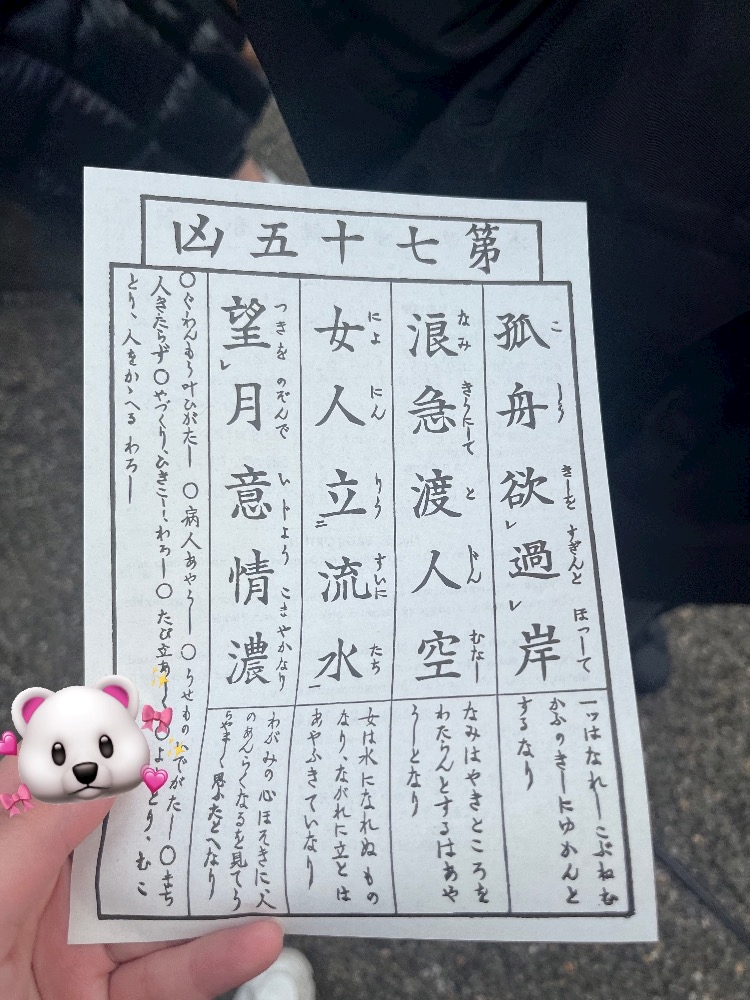 第七十五凶
孤舟欲過岸
こ しう きしを すぎんと ほつして
一ッはなれしこぶねむ
かふのきしにゆかんと
するなり
浪急渡人空
なみ きうにして と じん むなし
なみはやきところを
わたらんとするはあや
うしとなり
女人立流水
によ にん りう すいに たち
女は水になれぬもの
なり、ながれに立とは
あやふきていなり
望月意情濃
つきを のぞんで いじよう こまやかなり
わがみの心ほそきに、人
のあんらくなるを見てう
らやましく思ふたとへなり
○ぐわんもう叶ひがたし ○病人あやうし ○うせもの でがたし ○まち
人きたらず ○やづくり、ひきこし、わろし ○たび立あし ○よ とり、むこ
とり、人をかゝへる わろし